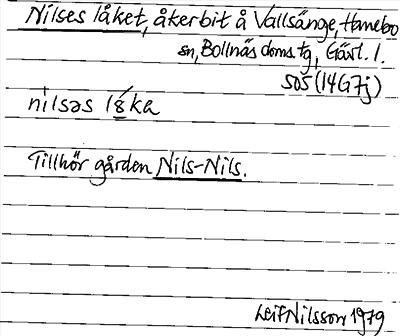 Nilses låket, åkerbit å Vallsänge, Hanebo
sn, Bollnäs doms tg, Gävl. l.
SOS (14G7j)
nilsəs l8ka
Tillhör gården Nils-Nils.
Leif Nilsson 1979